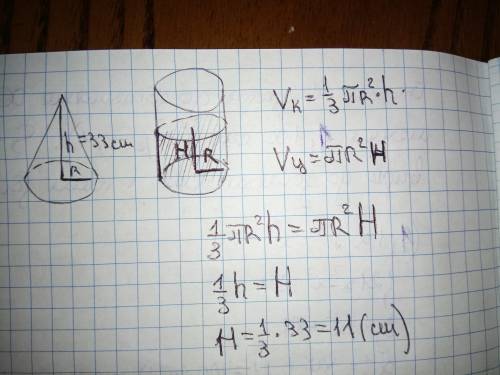 h=33cm
R
H
R
Vк=1/3πR²·h.
Vц=πR²H
1/3πR²h=πR²H
1/3h=H
H=1/3·33=11(cm)